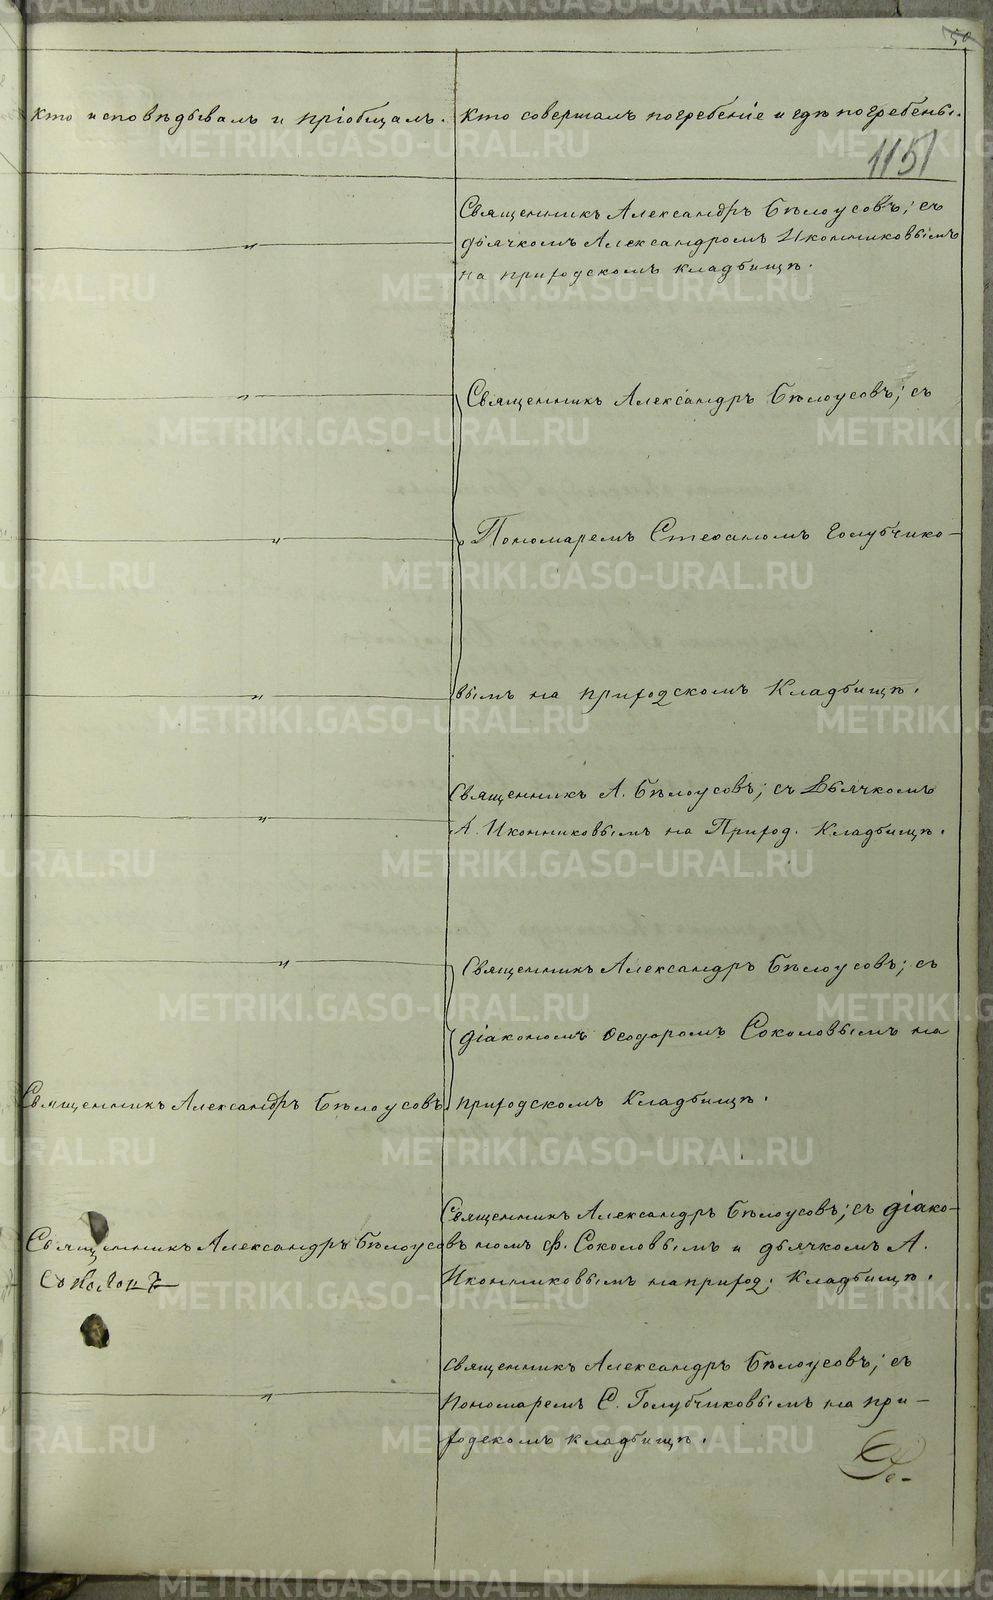 50
кто исповѣдывалъ и пріобщалъ.
кто совершалъ погребеніе и гдѣ погребены.
1151
Священникъ Александръ Бѣлоусовъ; съ
дьячкомъ Александромъ Иконниковымъ
на приходскомъ кладбищѣ.
Священникъ Александръ Бѣлоусовъ; съ
Пономаремъ Стефаномъ Голубчико-
вымъ на приходскомъ Кладбищѣ.
Священникъ А. Бѣлоусовъ; съ Дьячкомъ
А. Иконниковымъ на Приход. Кладбищѣ.
Священникъ Александръ Бѣлоусовъ; съ
діакономъ Ѳеодоромъ Соколовымъ на
Священникъ Александръ Бѣлоусовъ
приходскомъ Кладбищѣ.
Священникъ Александръ Бѣлоусовъ; съ діако-
Священникъ Александръ Бѣлоусовъ
номъ Ф. Соколовымъ и дьячкомъ А.
Иконниковымъ на приход. Кладбищѣ.
Священникъ Александръ Бѣлоусовъ; съ
Пономаремъ С. Голубчиковымъ на при-
ходскомъ кладбищѣ.
METRIKI.GASO-URAL.RU